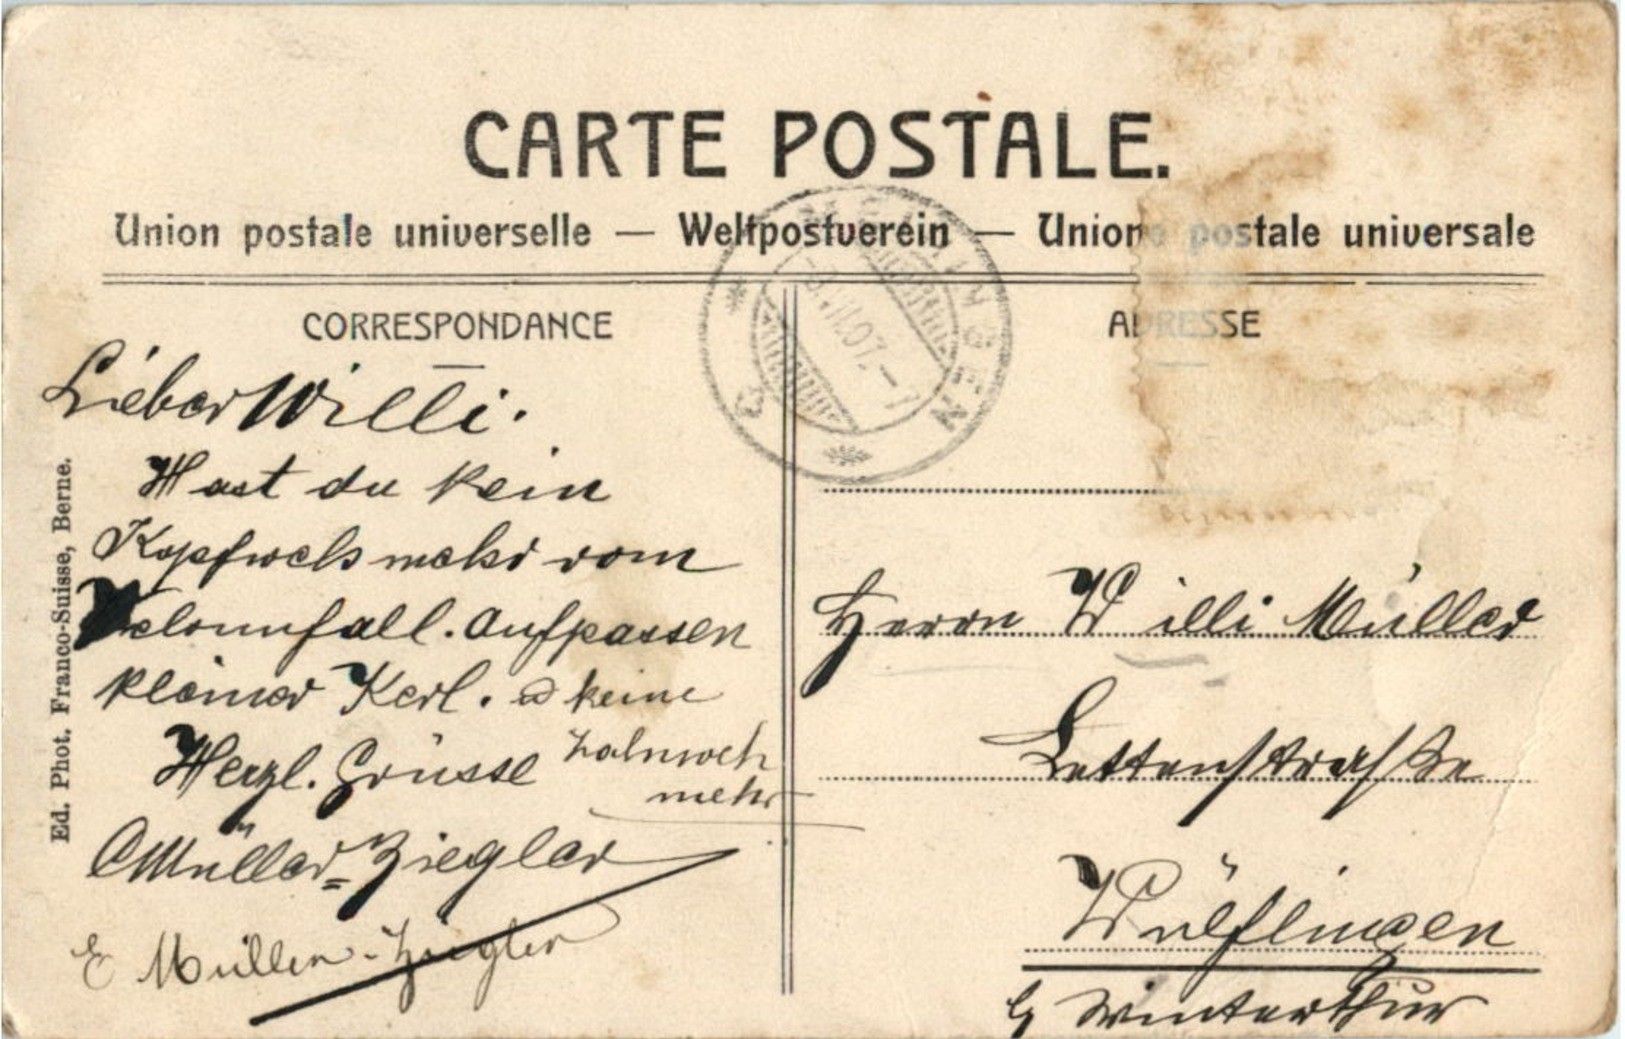 CARTE POSTALE.
Union postale universelle — Weltpostverein — Unione postale universale
CORRESPONDANCE
Lieber Willi.
Hast du kein
Kopfweh mehr vom
Velounfall. Aufpassen
kleiner Kerl. & keine
Zahnweh
mehr
Herzl. Grüsse
C Müller-Ziegler
E Müller-Ziegler
Ed. Phot. Franco-Suisse, Berne.
ADRESSE
Herrn Willi Müller
Lettenstrasse
Wülflingen
b/ Winterthur